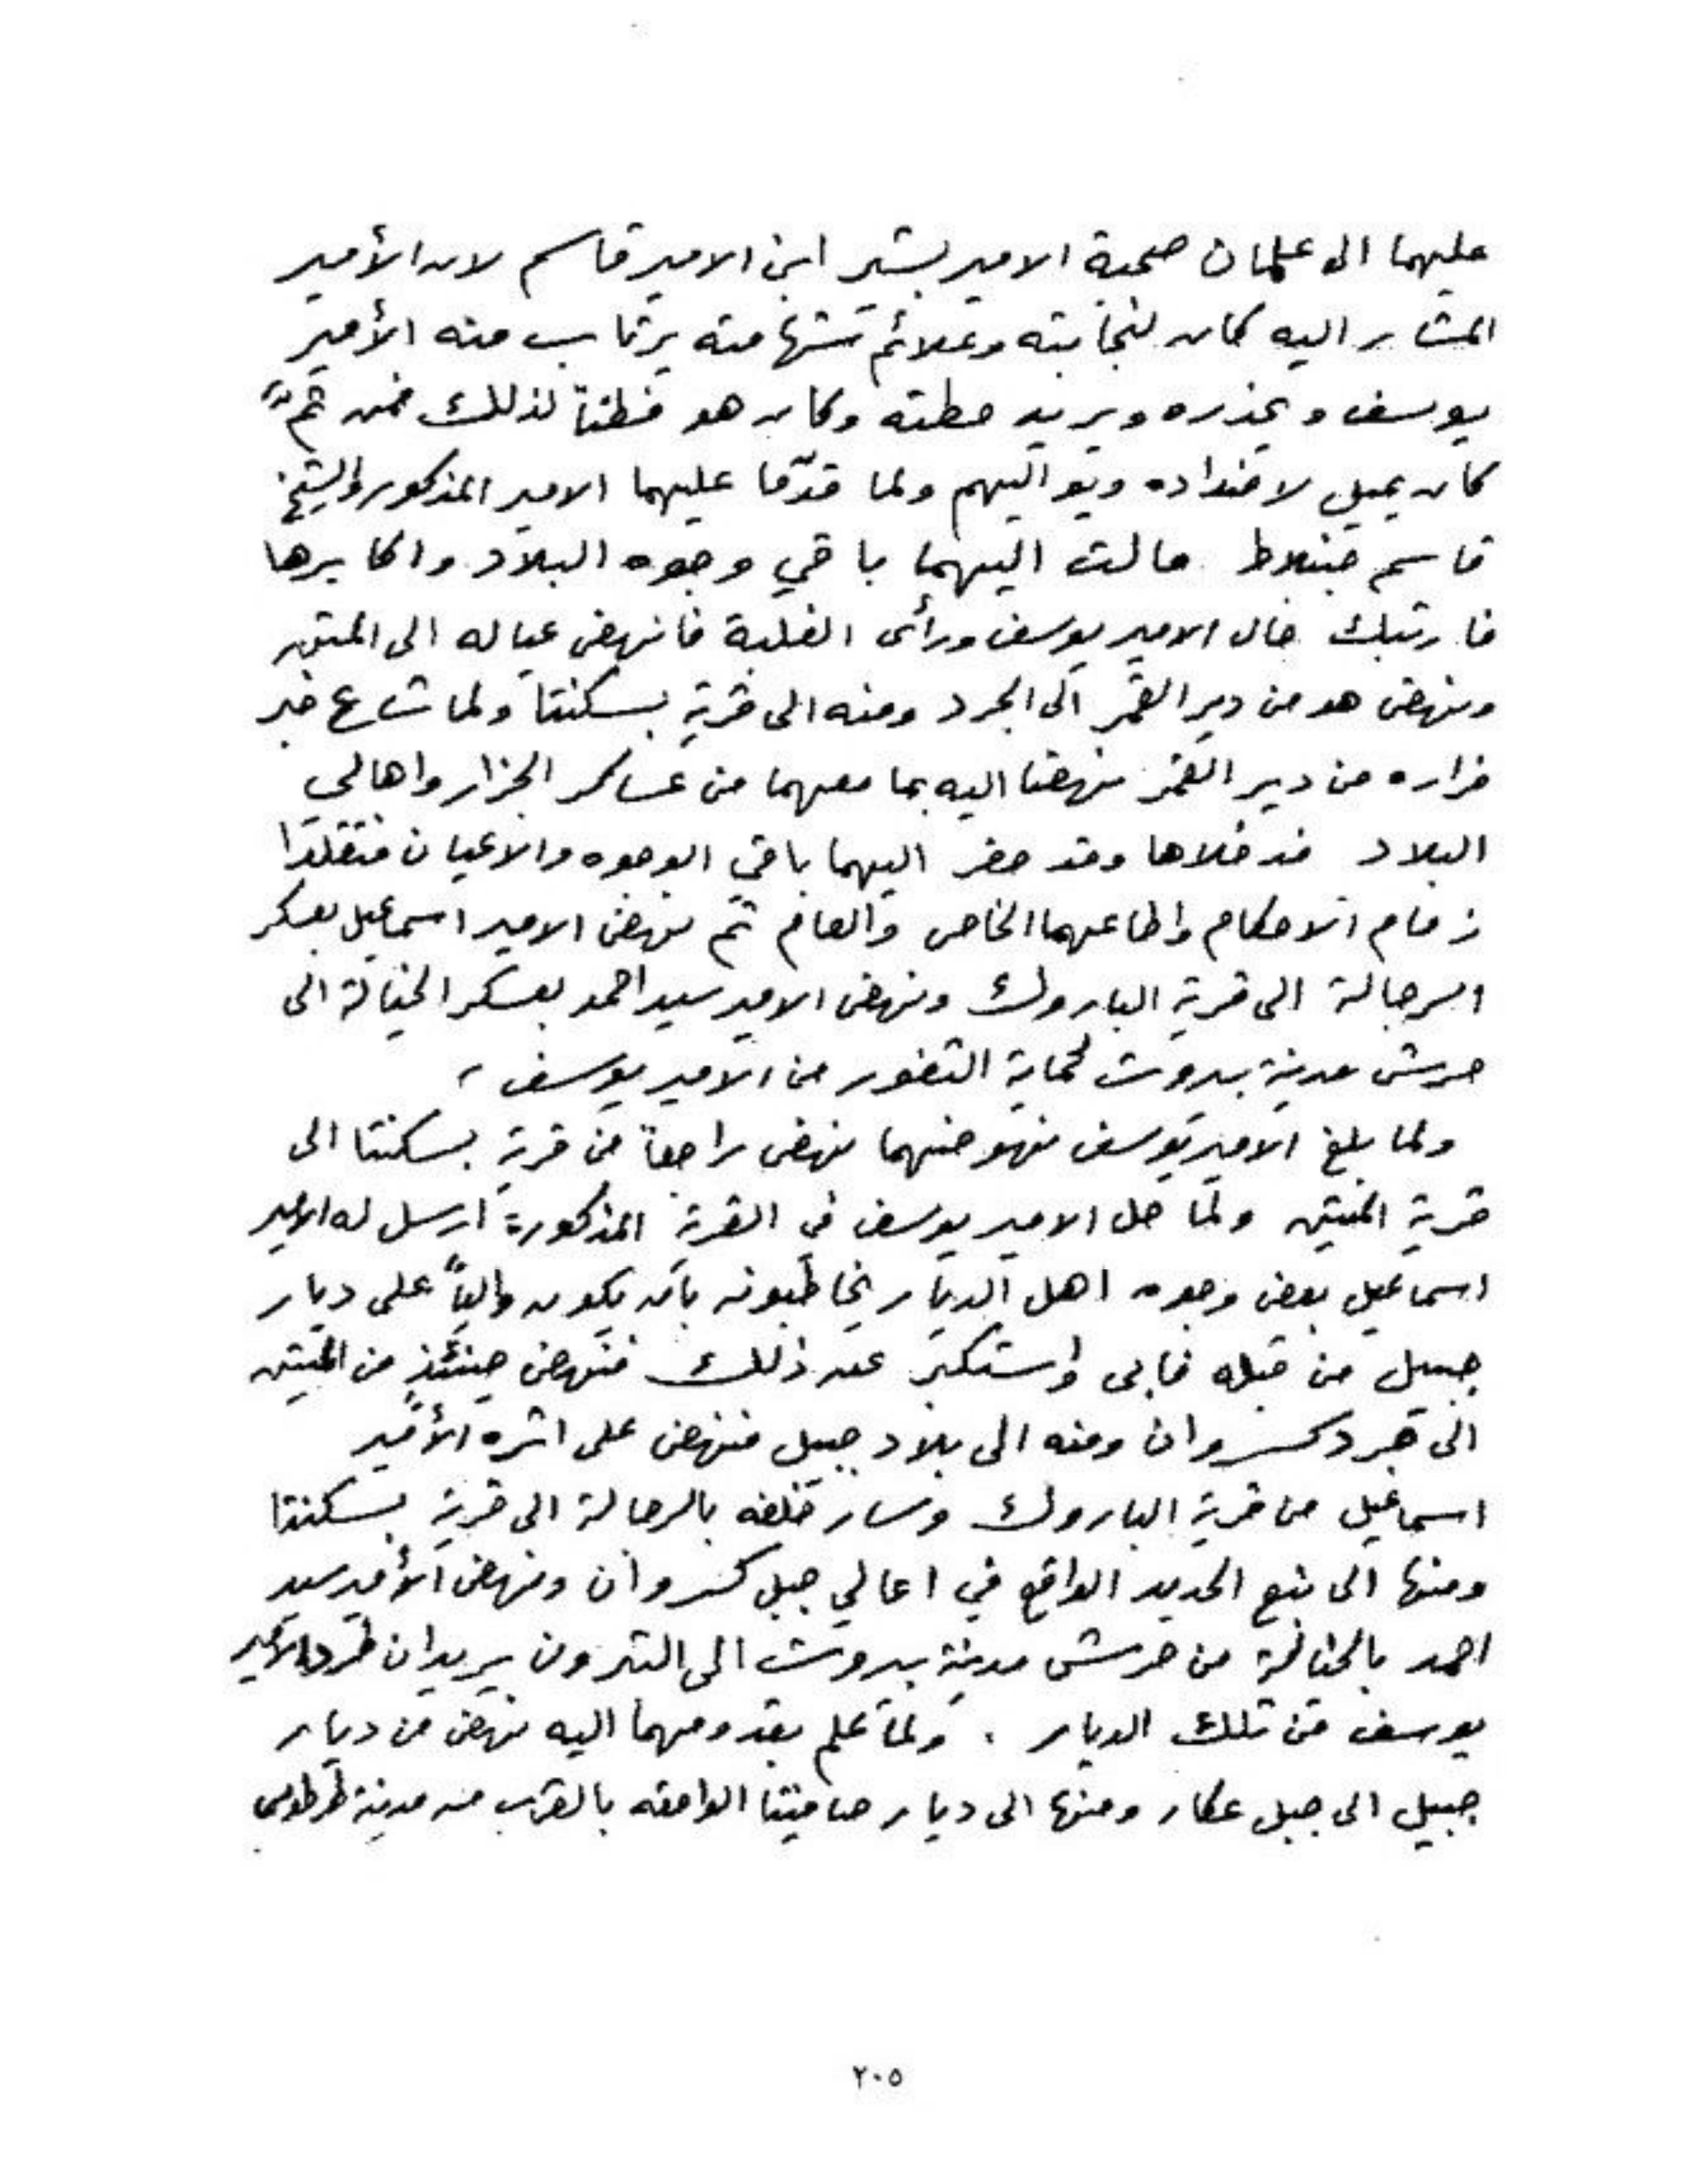 عليهما الى علمان صحبة الامير بشير ابن الامير قاسم لان الأمير
المشار اليه كان لنجابته وعلائم شهامته يرتاب منه الأمير
يوسف ويحذره ويريد حطته وكان هو فطناً لذلك فمن ثمّ
كان يميل لاضداده ويواليهم ولما قدما عليهما الامير المذكور والشيخ
قاسم جنبلاط مالت اليهما باقي وجوه البلاد واكابرها
فارتبك حال الامير يوسف ورأى الغلبة فانهض عياله الى المتين
ونهض هو من دير القمر الى الجرد ومنه الى قرية بسكنتا ولما شاع خبر
فراره من دير القمر نهضا اليه بما معهما من عساكر الجزار واهالي
البلاد فدخلاها وقد حضر اليهما باقي الوجوه والاعيان فتقلدا
زمام الاحكام واطاعهما الخاص والعام ثم نهض الامير اسماعيل بعسكر
الرجالة الى قرية الباروك ونهض الامير سيد احمد بعسكر الخيالة الى
حرش مدينة بيروت لحماية الثغور من الامير يوسف ،
ولما بلغ الامير يوسف نهوضهما نهض راجعاً من قرية بسكنتا الى
قرية المتين ولمّا حل الامير يوسف في القرية المذكورة ارسل له الامير
اسماعيل بعض وجوه اهل الديار يخاطبونه بان يكون والياً على ديار
جبيل من قبله فابى واستكبر عن ذلك فنهض حينئذٍ من المتين
الى جرد كسروان ومنه الى بلاد جبيل فنهض على اثره الأمير
اسماعيل من قرية الباروك وسار خلفه بالرجالة الى قرية بسكنتا
ومنها الى نبع الحديد الواقع في اعالي جبل كسروان ونهض الأمير سيد
احمد بالخيالة من حرش مدينة بيروت الى البترون يريدان طرد الامير
يوسف من تلك الديار . ولمّا علم بقدومهما اليه نهض من ديار
جبيل الى جبل عكار ومنها الى ديار صافيتا الواقعه بالقرب من مدينة طرطوس
٢٠٥